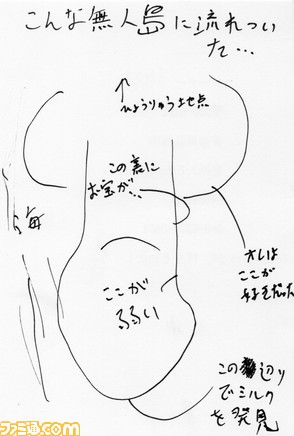 こんな無人島に流れつい
た…
↑
ひょうりゅう地点
この裏に
お宝が…
海
オレは
ここが
好きだった
ここが
弱い
この辺り
でミルク
を発見
ファミ通.com